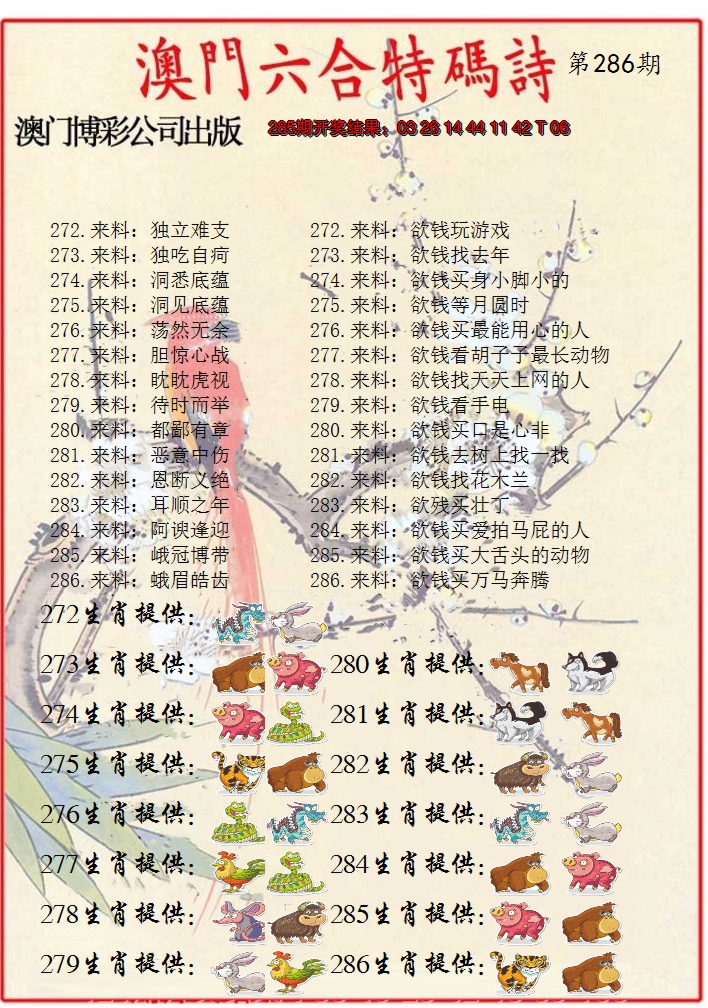 澳門六合特碼詩 第286期
澳门博彩公司出版 285期开奖结果：03 26 14 44 11 42 T 06
272.来料：独立难支 272.来料：欲钱玩游戏
273.来料：独吃自疴 273.来料：欲钱找去年
274.来料：洞悉底蕴 274.来料：欲钱买身小脚小的
275.来料：洞见底蕴 275.来料：欲钱等月圆时
276.来料：荡然无余 276.来料：欲钱买最能用心的人
277.来料：胆惊心战 277.来料：欲钱看胡子予最长动物
278.来料：眈眈虎视 278.来料：欲钱找天天上网的人
279.来料：待时而举 279.来料：欲钱看手电
280.来料：都鄙有章 280.来料：欲钱买口是心非
281.来料：恶意中伤 281.来料：欲钱去树上找一找
282.来料：恩断义绝 282.来料：欲钱找花木兰
283.来料：耳顺之年 283.来料：欲残买壮丁
284.来料：阿谀逢迎 284.来料：欲钱买爱拍马屁的人
285.来料：峨冠博带 285.来料：欲钱买大舌头的动物
286.来料：蛾眉皓齿 286.来料：欲钱买万马奔腾
272生肖提供：
273生肖提供： 280生肖提供：
274生肖提供： 281生肖提供：
275生肖提供： 282生肖提供：
276生肖提供： 283生肖提供：
277生肖提供： 284生肖提供：
278生肖提供： 285生肖提供：
279生肖提供： 286生肖提供：